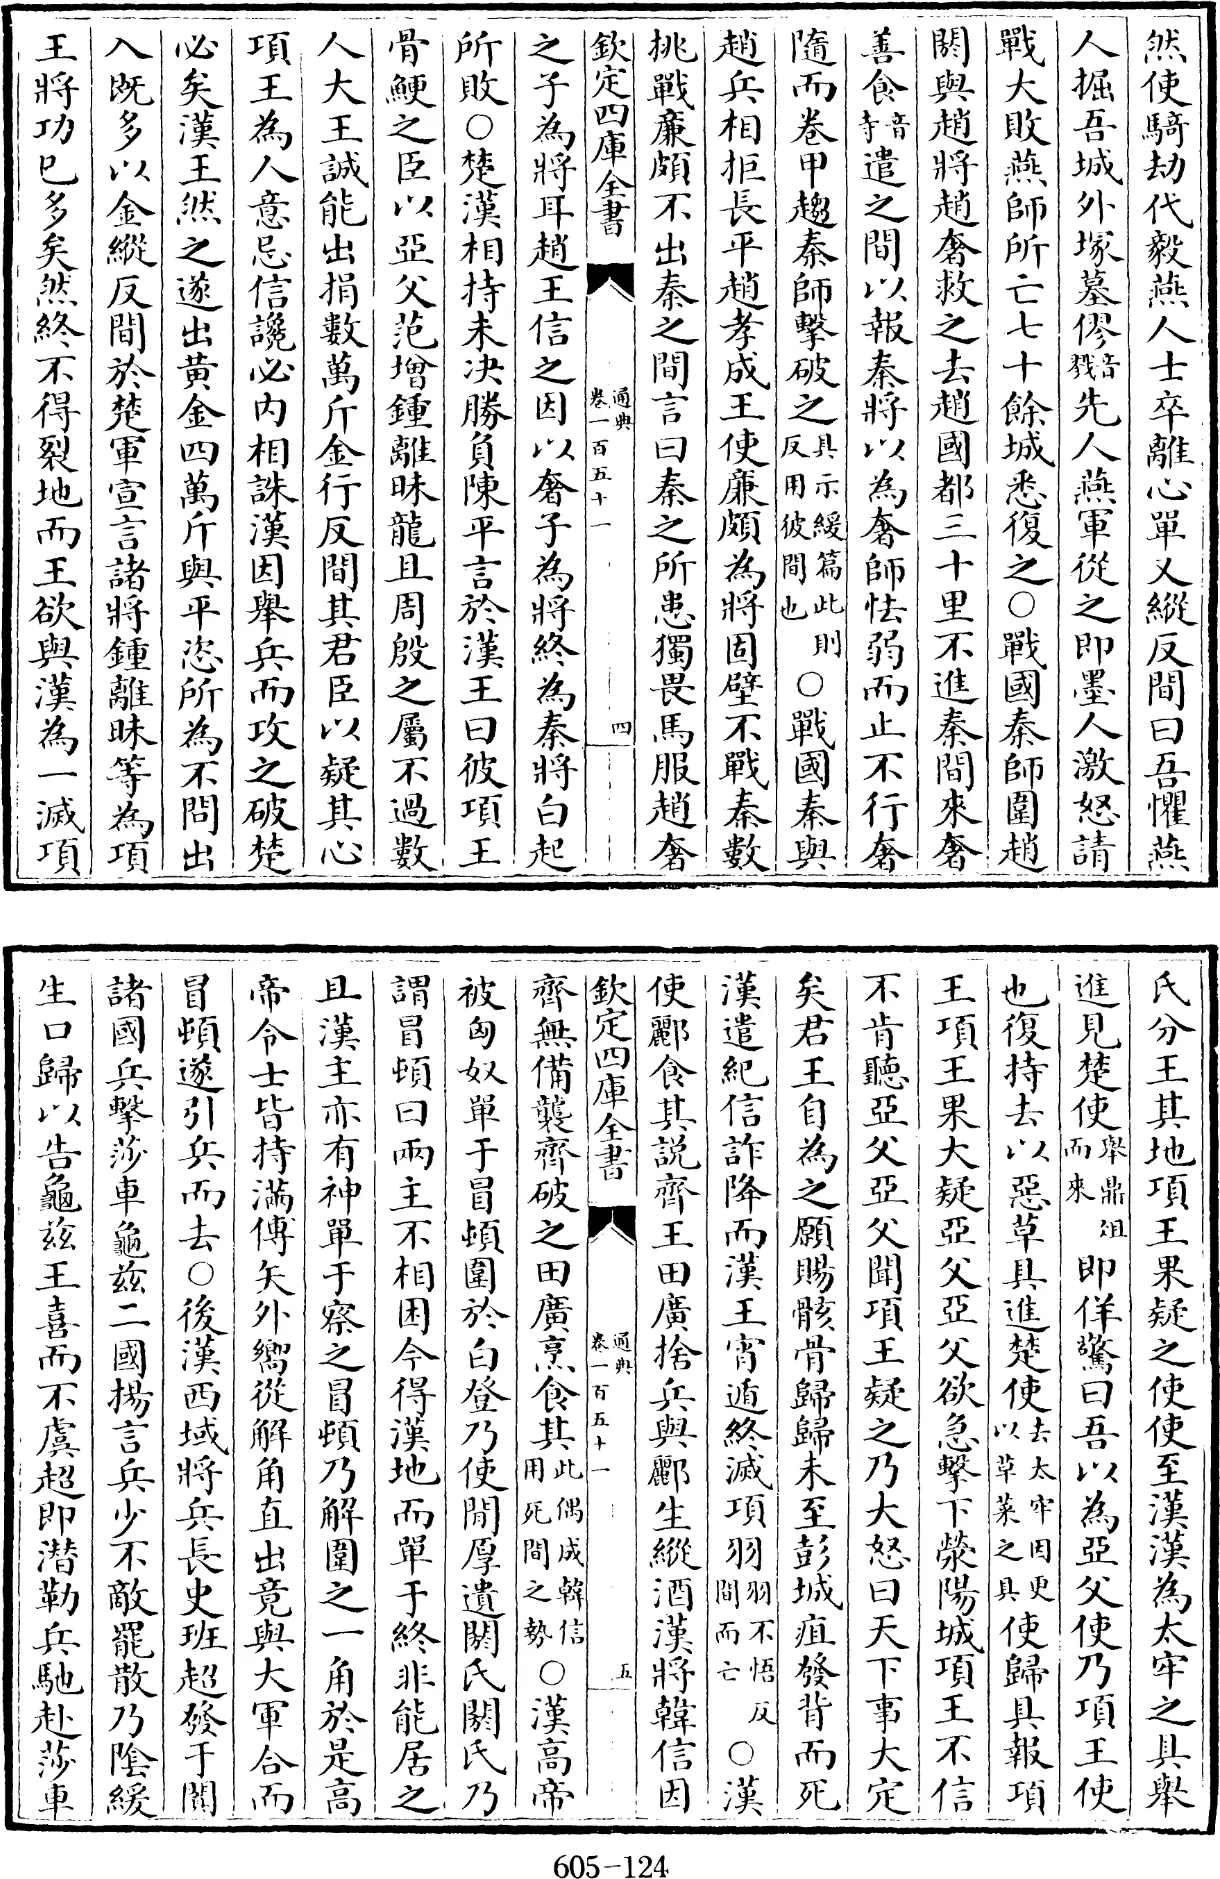 然使騎劫代毅燕人士卒離心單又縱反間曰吾懼燕
人掘吾城外塚墓僇音戮先人燕軍從之即墨人激怒請
戰大敗燕師所亡七十餘城悉復之○戰國秦師圍趙
閼與趙將趙奢救之去趙國都三十里不進秦間來奢
善食音寺遣之間以報秦將以為奢師怯弱而止不行奢
隨而卷甲趨秦師擊破之具示緩篇此則反用彼間也○戰國秦與
趙兵相拒長平趙孝成王使廉頗為將固壁不戰秦數
挑戰廉頗不出秦之間言曰秦之所患獨畏馬服趙奢
欽定四庫全書 通典卷一百五十一 四
之子為將耳趙王信之因以奢子為將終為秦將白起
所敗○楚漢相持未决勝負陳平言於漢王曰彼項王
骨鯁之臣以亞父范增鍾離昧龍且周殷之屬不過數
人大王誠能出捐數萬斤金行反間其君臣以疑其心
項王為人意忌信讒必内相誅漢因舉兵而攻之破楚
必矣漢王然之遂出黄金四萬斤與平恣所為不問出
入既多以金縱反間於楚軍宣言諸將鍾離昧等為項
王將功已多矣然終不得裂地而王欲與漢為一滅項
氏分王其地項王果疑之使使至漢漢為太牢之具舉
進見楚使舉鼎俎而來即佯驚曰吾以為亞父使乃項王使
也復持去以惡草具進楚使去太牢因更以草菜之具使歸具報項
王項王果大疑亞父亞父欲急擊下滎陽城項王不信
不肯聽亞父亞父聞項王疑之乃大怒曰天下事大定
矣君王自為之願賜骸骨歸歸未至彭城疽發背而死
漢遣紀信詐降而漢王宵遁終滅項羽羽不悟反間而亡○漢
使酈食其説齊王田廣捨兵與酈生縱酒漢將韓信因
欽定四庫全書 通典卷一百五十一 五
齊無備襲齊破之田廣烹食其此偶成韓信用死間之勢○漢高帝
被匈奴單于冒頓圍於白登乃使間厚遺閼氏閼氏乃
謂冒頓曰兩主不相困今得漢地而單于終非能居之
且漢主亦有神單于察之冒頓乃解圍之一角於是高
帝令士皆持滿傅矢外嚮從解角直出竟與大軍合而
冒頓遂引兵而去○後漢西域將兵長史班超發于闐
諸國兵擊莎車龜兹二國揚言兵少不敵罷散乃陰緩
生口歸以告龜兹王喜而不虞超即潛勒兵馳赴莎車
605-124